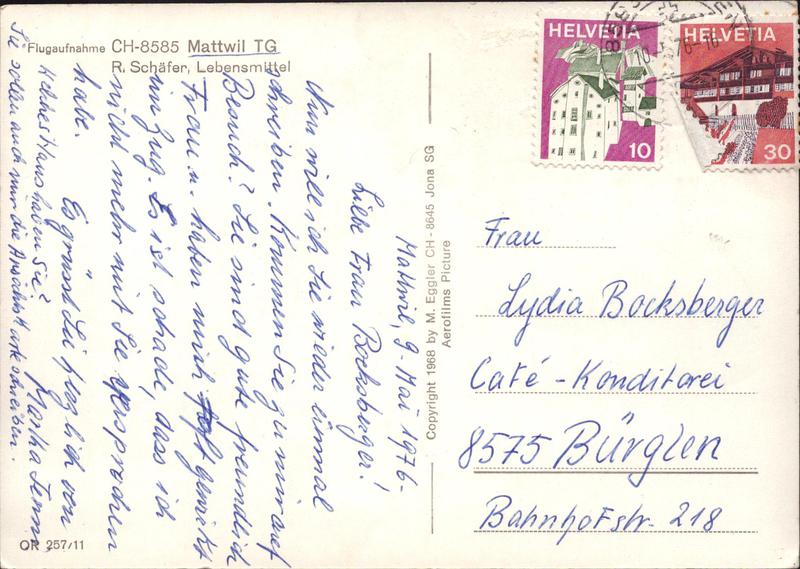 Flugaufnahme CH-8585 Mattwil TG
R. Schäfer, Lebensmittel
Mattwil, 9. Mai 1976.
Liebe Frau Bocksberger!
Nun will ich Sie wieder einmal
schreiben. Kommen Sie zu mir auf
Besuch? Sie sind gute freundlich
Frau u. haben mich oft gewinkt
im Zug. Es ist schade, dass ich
nicht mehr mit Sie versprochen
habe.
Es grüsst Sie herzlich von
Martha
kleines Haus haben Sie?
Sie sollen auch mir die Ansichtskarte schreiben.
OR 257/11
Copyright 1968 by M. Eggler CH-8645 Jona SG
Aerofilms Picture
HELVETIA
10
HELVETIA
30
Frau
Lydia Bocksberger
Café - Konditorei
8575 Bürglen
Bahnhofstr. 218